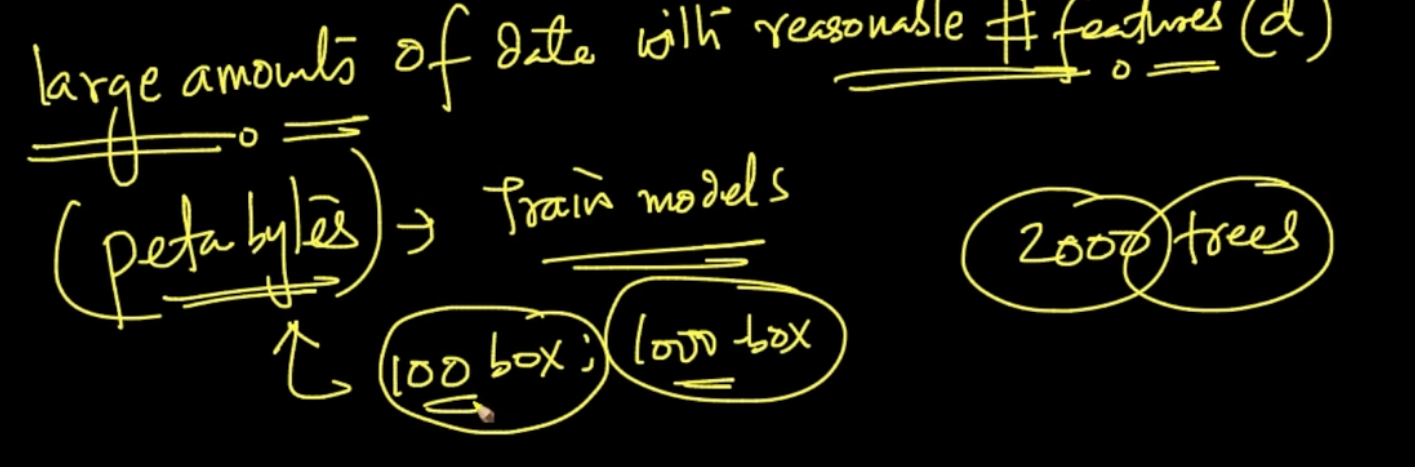 large amounts of data with reasonable # features (d)
(peta bytes) → Train models
2000 trees
100 box; 1000 box